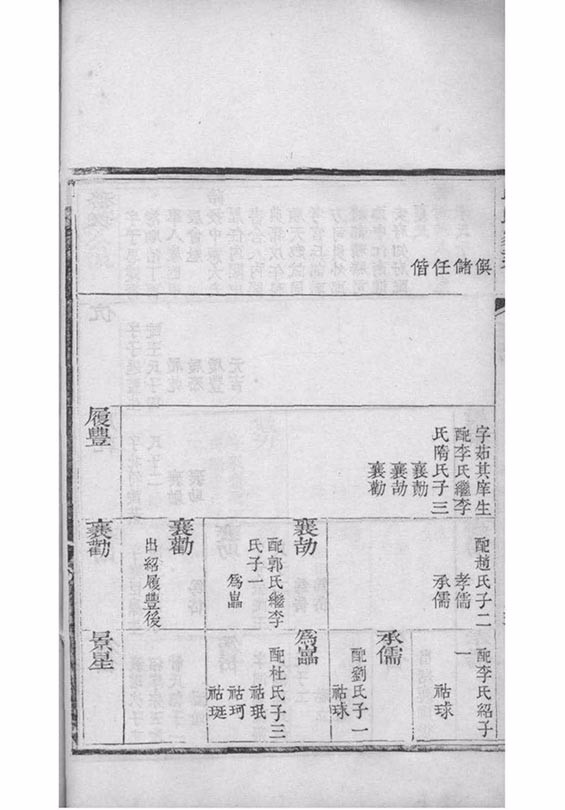 俁
儲
任
偕
字茹其庠生
配李氏繼李
氏隋氏子三
襄勣
襄劼
襄勸
履豐
配趙氏子二
孝儒
承儒
襄劼
配郭氏繼李
氏子一
為畾
襄勸
出紹履豐後
襄勸
配李氏紹子
一
祜球
承儒
配劉氏子一
祜球
為畾
配杜氏子三
祜珉
祜珂
祜珽
景星